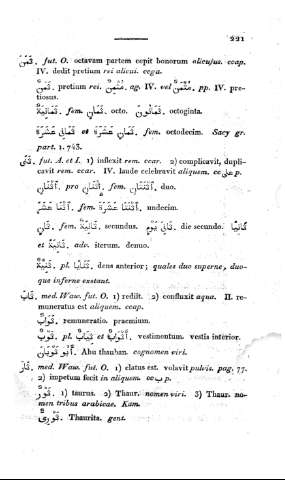 221
ثَمَنَ. fut. O. octavam partem cepit bonorum alicujus. ccap.
IV. dedit pretium rei alicui. ccga.
ثَمَنٌ. pretium rei. مُثْمِنٌ. ag. IV. vel مُثْمَنٌ. pp. IV. pre-
tiosus.
ثَمَانِيَةٌ. fem. ثَمَانٍ. octo. ثَمَانُونَ. octoginta.
ثَمَانِيَةَ عَشَرَ et ثَمَانِيَ عَشْرَةَ. fem. octodecim. Sacy gr.
part. 1. 743.
ثَنَى. fut. d. et I. 1) inflexit rem. ccar. 2) complicavit, dupli-
cavit rem. ccar. IV. laude celebravit aliquem. cc على p.
إِثْنَانِ. pro ثِنْتَانِ. fem. إِثْنَتَانِ. duo.
إِثْنَا عَشَرَ. fem. إِثْنَتَا عَشْرَةَ. undecim.
ثَانٍ. fem. ثَانِيَةٌ. secundus. ثَانِيَ يَوْمٍ. die secundo. ثَانِيًا
et ثَانِيَةً. adv. iterum. denuo.
ثَنِيَّةٌ. pl. ثَنَايَا. dens anterior; quales duo superne, duo-
que inferne exstant.
ثَابَ. med. Waw. fut. O. 1) rediit. 2) confluxit aqua. II. re-
muneratus est aliquem. ccap.
ثَوَابٌ. remuneratio. praemium.
ثَوْبٌ. pl. ثِيَابٌ et أَثْوَابٌ. vestimentum. vestis interior.
أَبُو ثَوْبَانَ. Abu thauban. cognomen viri.
ثَارَ. med. Waw. fut. O. 1) elatus est. volavit pulvis. pag. 77.
2) impetum fecit in aliquem. cc ب p.
ثَوْرٌ. 1) taurus. 2) Thaur. nomen viri. 3) Thaur. no-
men tribus arabicae. Kam.
ثَوْرِيٌّ. Thaurita. gent.